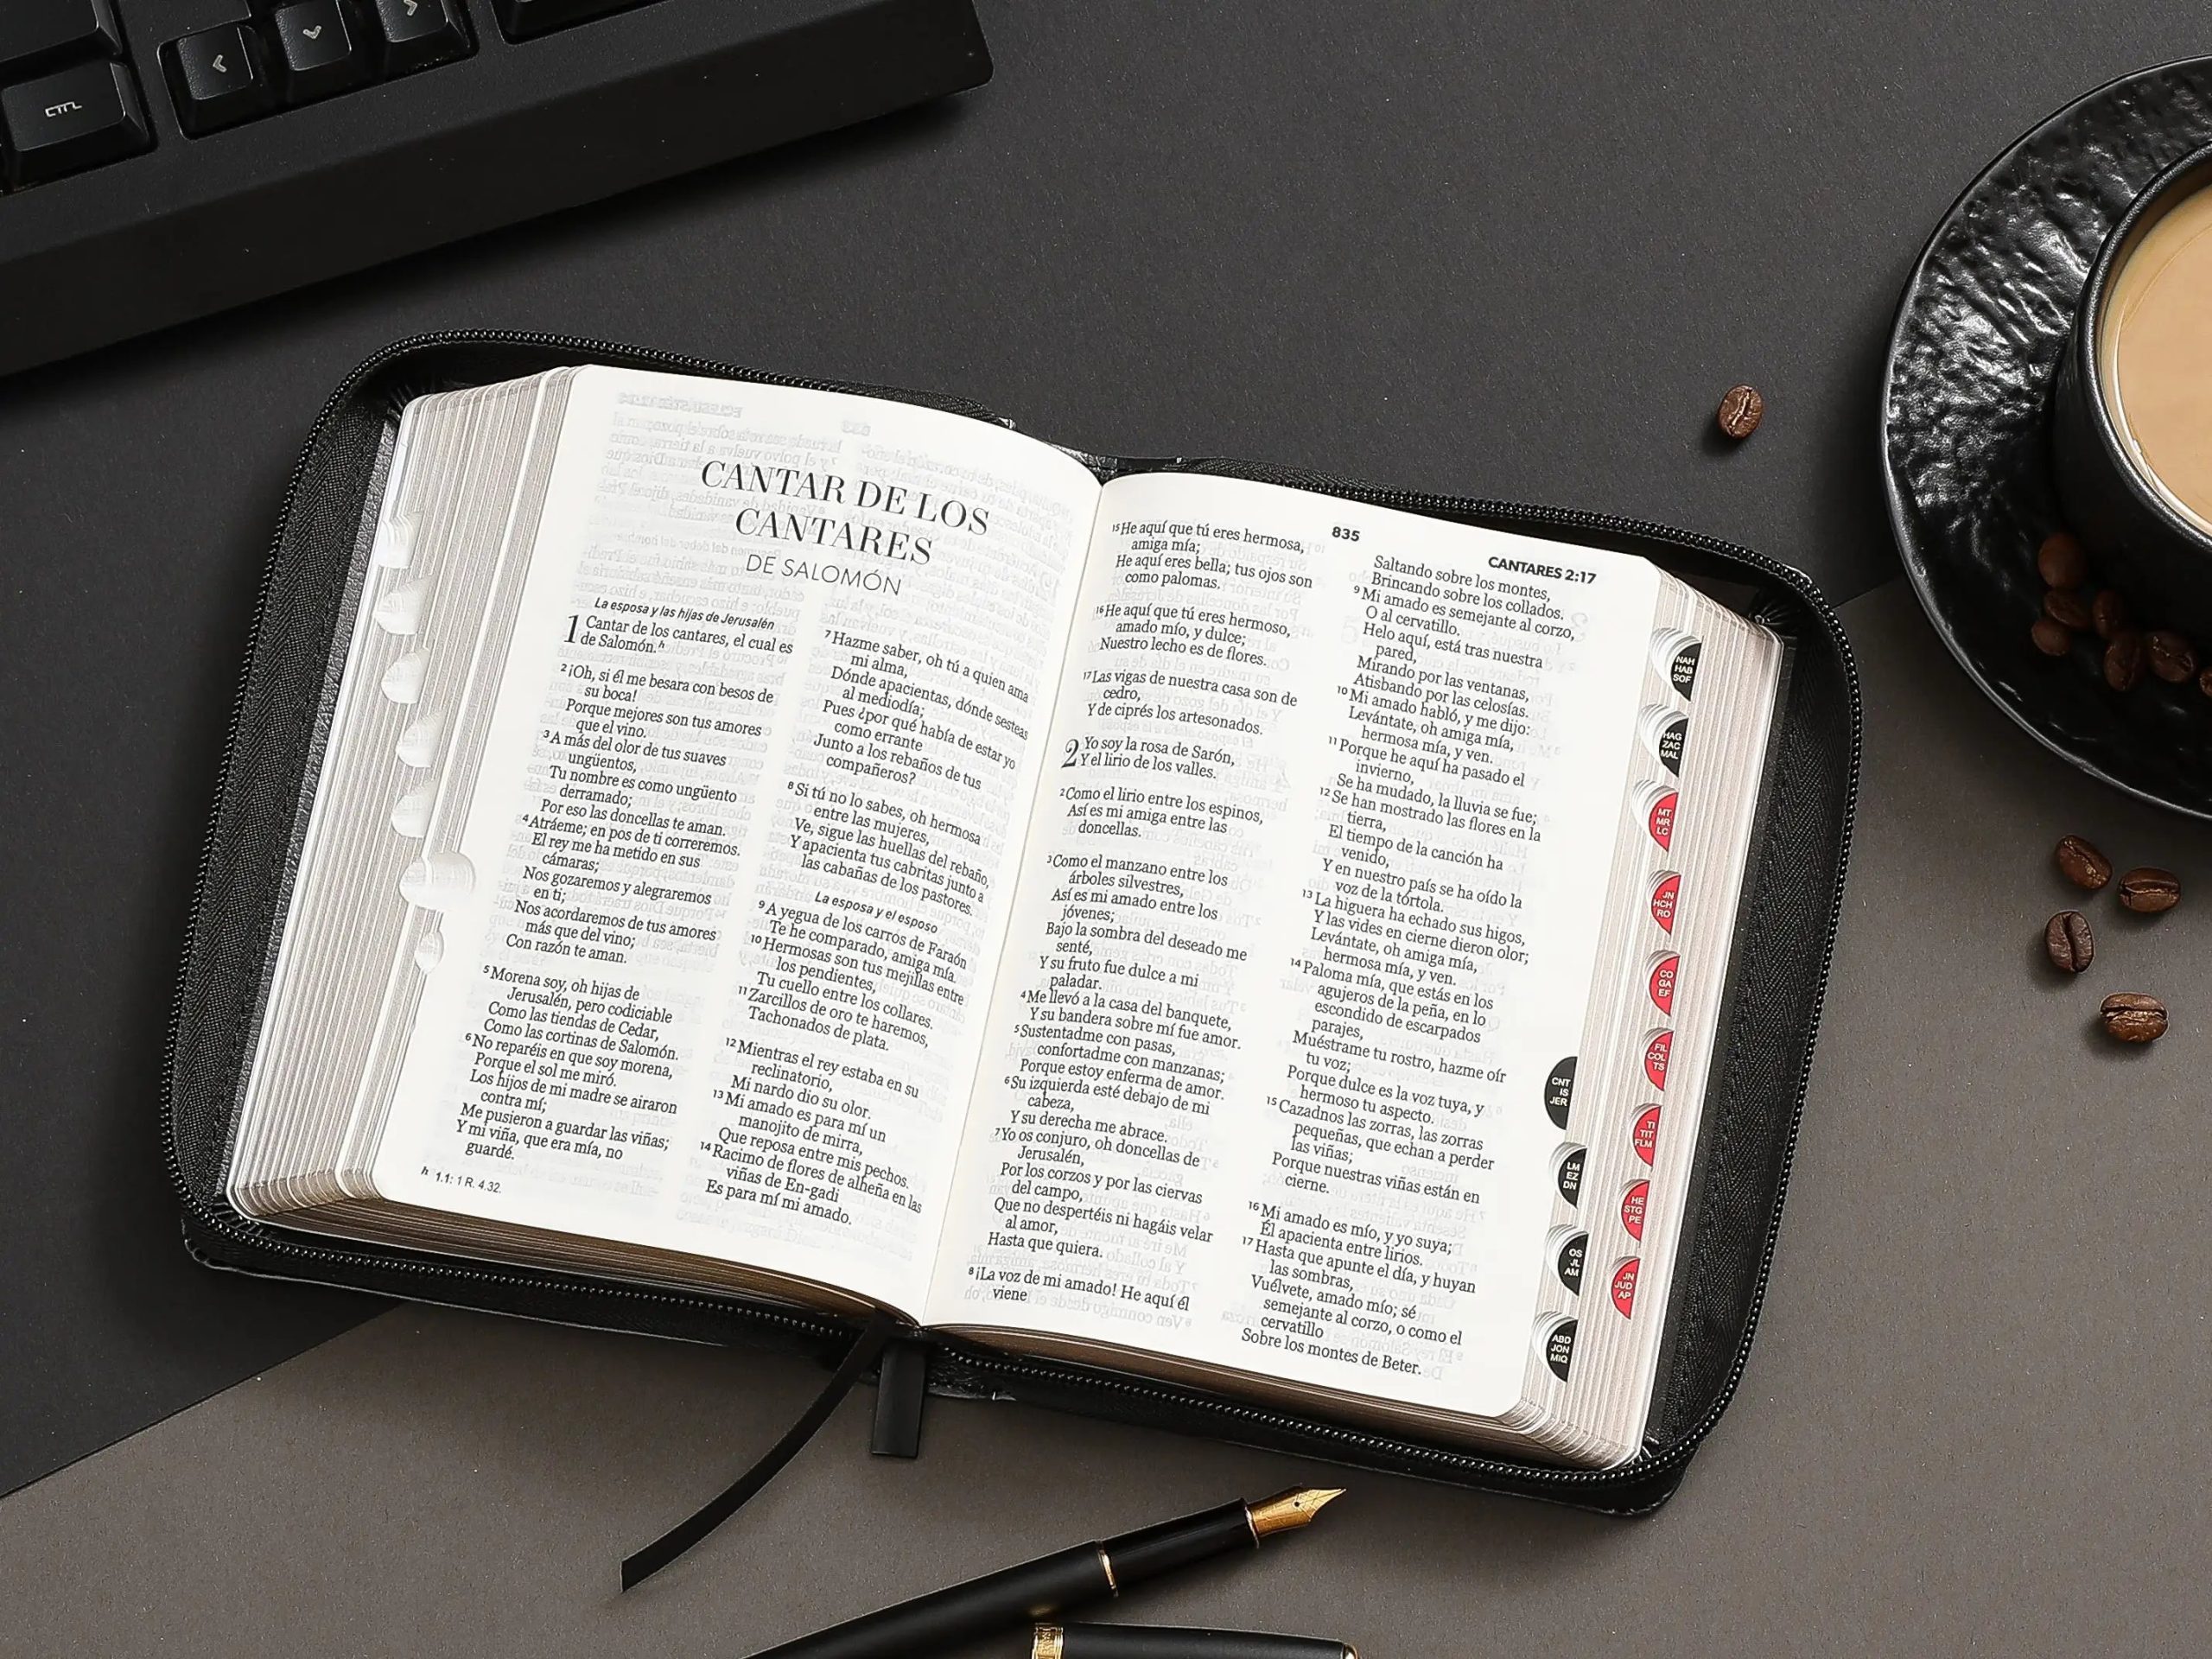 CTRL
CANTAR DE LOS
CANTARES
DE SALOMÓN
La esposa y las hijas de Jerusalén
1 Cantar de los cantares, el cual es
de Salomón.h
2 ¡Oh, si él me besara con besos de
su boca!
Porque mejores son tus amores
que el vino.
3 A más del olor de tus suaves
ungüentos,
Tu nombre es como ungüento
derramado;
Por eso las doncellas te aman.
4 Atráeme; en pos de ti correremos.
El rey me ha metido en sus
cámaras;
Nos gozaremos y alegraremos
en ti;
Nos acordaremos de tus amores
más que del vino;
Con razón te aman.
5 Morena soy, oh hijas de
Jerusalén, pero codiciable
Como las tiendas de Cedar,
Como las cortinas de Salomón.
6 No reparéis en que soy morena,
Porque el sol me miró.
Los hijos de mi madre se airaron
contra mí;
Me pusieron a guardar las viñas;
Y mi viña, que era mía, no
guardé.
h 1.1: 1 R. 4.32.
7 Hazme saber, oh tú a quien ama
mi alma,
Dónde apacientas, dónde sesteas
al mediodía;
Pues ¿por qué había de estar yo
como errante
Junto a los rebaños de tus
compañeros?
8 Si tú no lo sabes, oh hermosa
entre las mujeres,
Ve, sigue las huellas del rebaño,
Y apacienta tus cabritas junto a
las cabañas de los pastores.
La esposa y el esposo
9 A yegua de los carros de Faraón
Te he comparado, amiga mía.
10 Hermosas son tus mejillas entre
los pendientes,
Tu cuello entre los collares.
11 Zarcillos de oro te haremos,
Tachonados de plata.
12 Mientras el rey estaba en su
reclinatorio,
Mi nardo dio su olor.
13 Mi amado es para mí un
manojito de mirra,
Que reposa entre mis pechos.
14 Racimo de flores de alheña en las
viñas de En-gadi
Es para mí mi amado.
835
CANTARES 2:17
15 He aquí que tú eres hermosa,
amiga mía;
He aquí eres bella; tus ojos son
como palomas.
16 He aquí que tú eres hermoso,
amado mío, y dulce;
Nuestro lecho es de flores.
17 Las vigas de nuestra casa son de
cedro,
Y de ciprés los artesonados.
2 Yo soy la rosa de Sarón,
Y el lirio de los valles.
2 Como el lirio entre los espinos,
Así es mi amiga entre las
doncellas.
3 Como el manzano entre los
árboles silvestres,
Así es mi amado entre los
jóvenes;
Bajo la sombra del deseado me
senté,
Y su fruto fue dulce a mi
paladar.
4 Me llevó a la casa del banquete,
Y su bandera sobre mí fue amor.
5 Sustentadme con pasas,
confortadme con manzanas;
Porque estoy enferma de amor.
6 Su izquierda esté debajo de mi
cabeza,
Y su derecha me abrace.
7 Yo os conjuro, oh doncellas de
Jerusalén,
Por los corzos y por las ciervas
del campo,
Que no despertéis ni hagáis velar
al amor,
Hasta que quiera.
8 ¡La voz de mi amado! He aquí él
viene
Saltando sobre los montes,
Brincando sobre los collados.
9 Mi amado es semejante al corzo,
O al cervatillo.
Helo aquí, está tras nuestra
pared,
Mirando por las ventanas,
Atisbando por las celosías.
10 Mi amado habló, y me dijo:
Levántate, oh amiga mía,
hermosa mía, y ven.
11 Porque he aquí ha pasado el
invierno,
Se ha mudado, la lluvia se fue;
12 Se han mostrado las flores en la
tierra,
El tiempo de la canción ha
venido,
Y en nuestro país se ha oído la
voz de la tórtola.
13 La higuera ha echado sus higos,
Y las vides en cierne dieron olor;
Levántate, oh amiga mía,
hermosa mía, y ven.
14 Paloma mía, que estás en los
agujeros de la peña, en lo
escondido de escarpados
parajes,
Muéstrame tu rostro, hazme oír
tu voz;
Porque dulce es la voz tuya, y
hermoso tu aspecto.
15 Cazadnos las zorras, las zorras
pequeñas, que echan a perder
las viñas;
Porque nuestras viñas están en
cierne.
16 Mi amado es mío, y yo suya;
Él apacienta entre lirios.
17 Hasta que apunte el día, y huyan
las sombras,
Vuélvete, amado mío; sé
semejante al corzo, o como el
cervatillo
Sobre los montes de Beter.
CNT
IS
JER
LM
EZ
DN
OS
JL
AM
ABD
JON
MIQ
NAH
HAB
SOF
HAG
ZAC
MAL
MT
MR
LC
JN
HCH
RO
CO
GA
EF
FIL
COL
TS
TI
TIT
FLM
HE
STG
PE
JN
JUD
AP